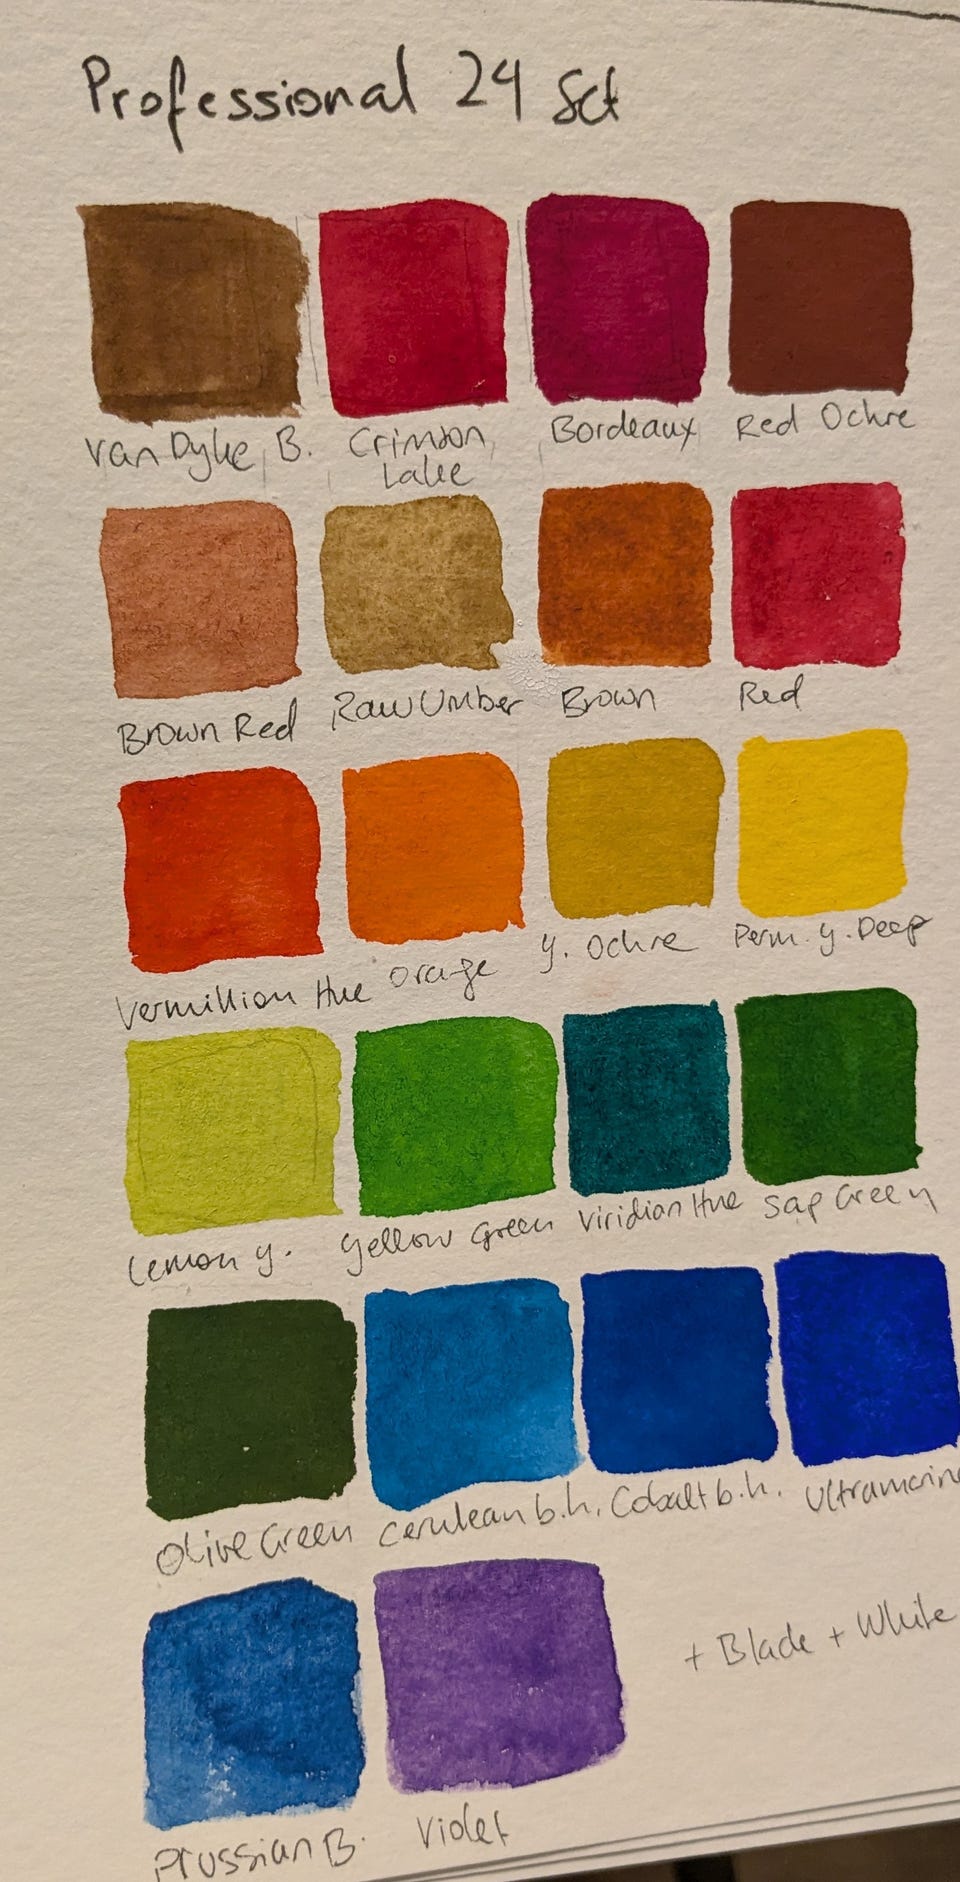 Professional 24 Set
Van Dyke B.
Crimson
Lake
Bordeaux
Red Ochre
Brown Red
Raw Umber
Brown
Red
Vermillion Hue
Orange
y. Ochre
Perm. y. Deep
Lemon y.
Yellow Green
Viridian Hue
Sap Green
Olive Green
Cerulean b.h.
Cobalt b.h.
Ultramarine
Prussian B.
Violet
+ Black + White